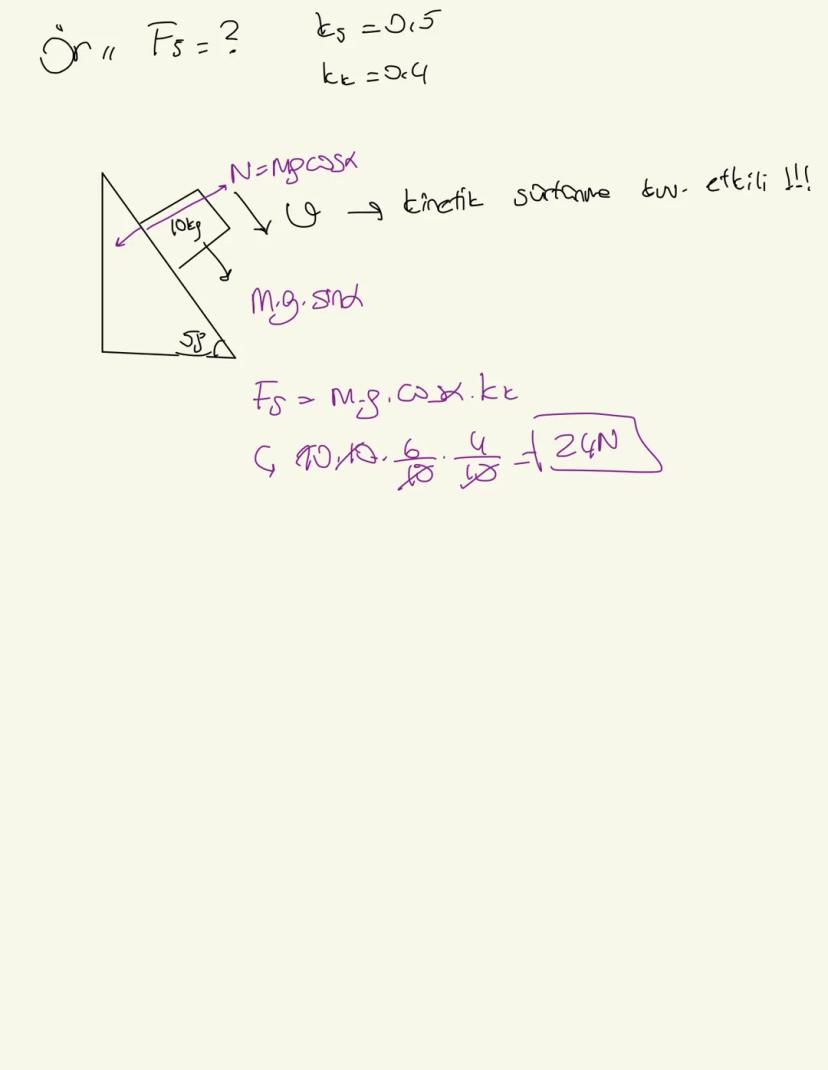 Ör〃 Fs = ? ks = 0,5
kk = 0.4
N = Mgcosα
10kg
υ → kinetik sürtünme kuv. etkili !!!
M.g.sinα
53
Fs = M.g.cosα.kk
↳ 10.10.6/10.4/10 = 24N